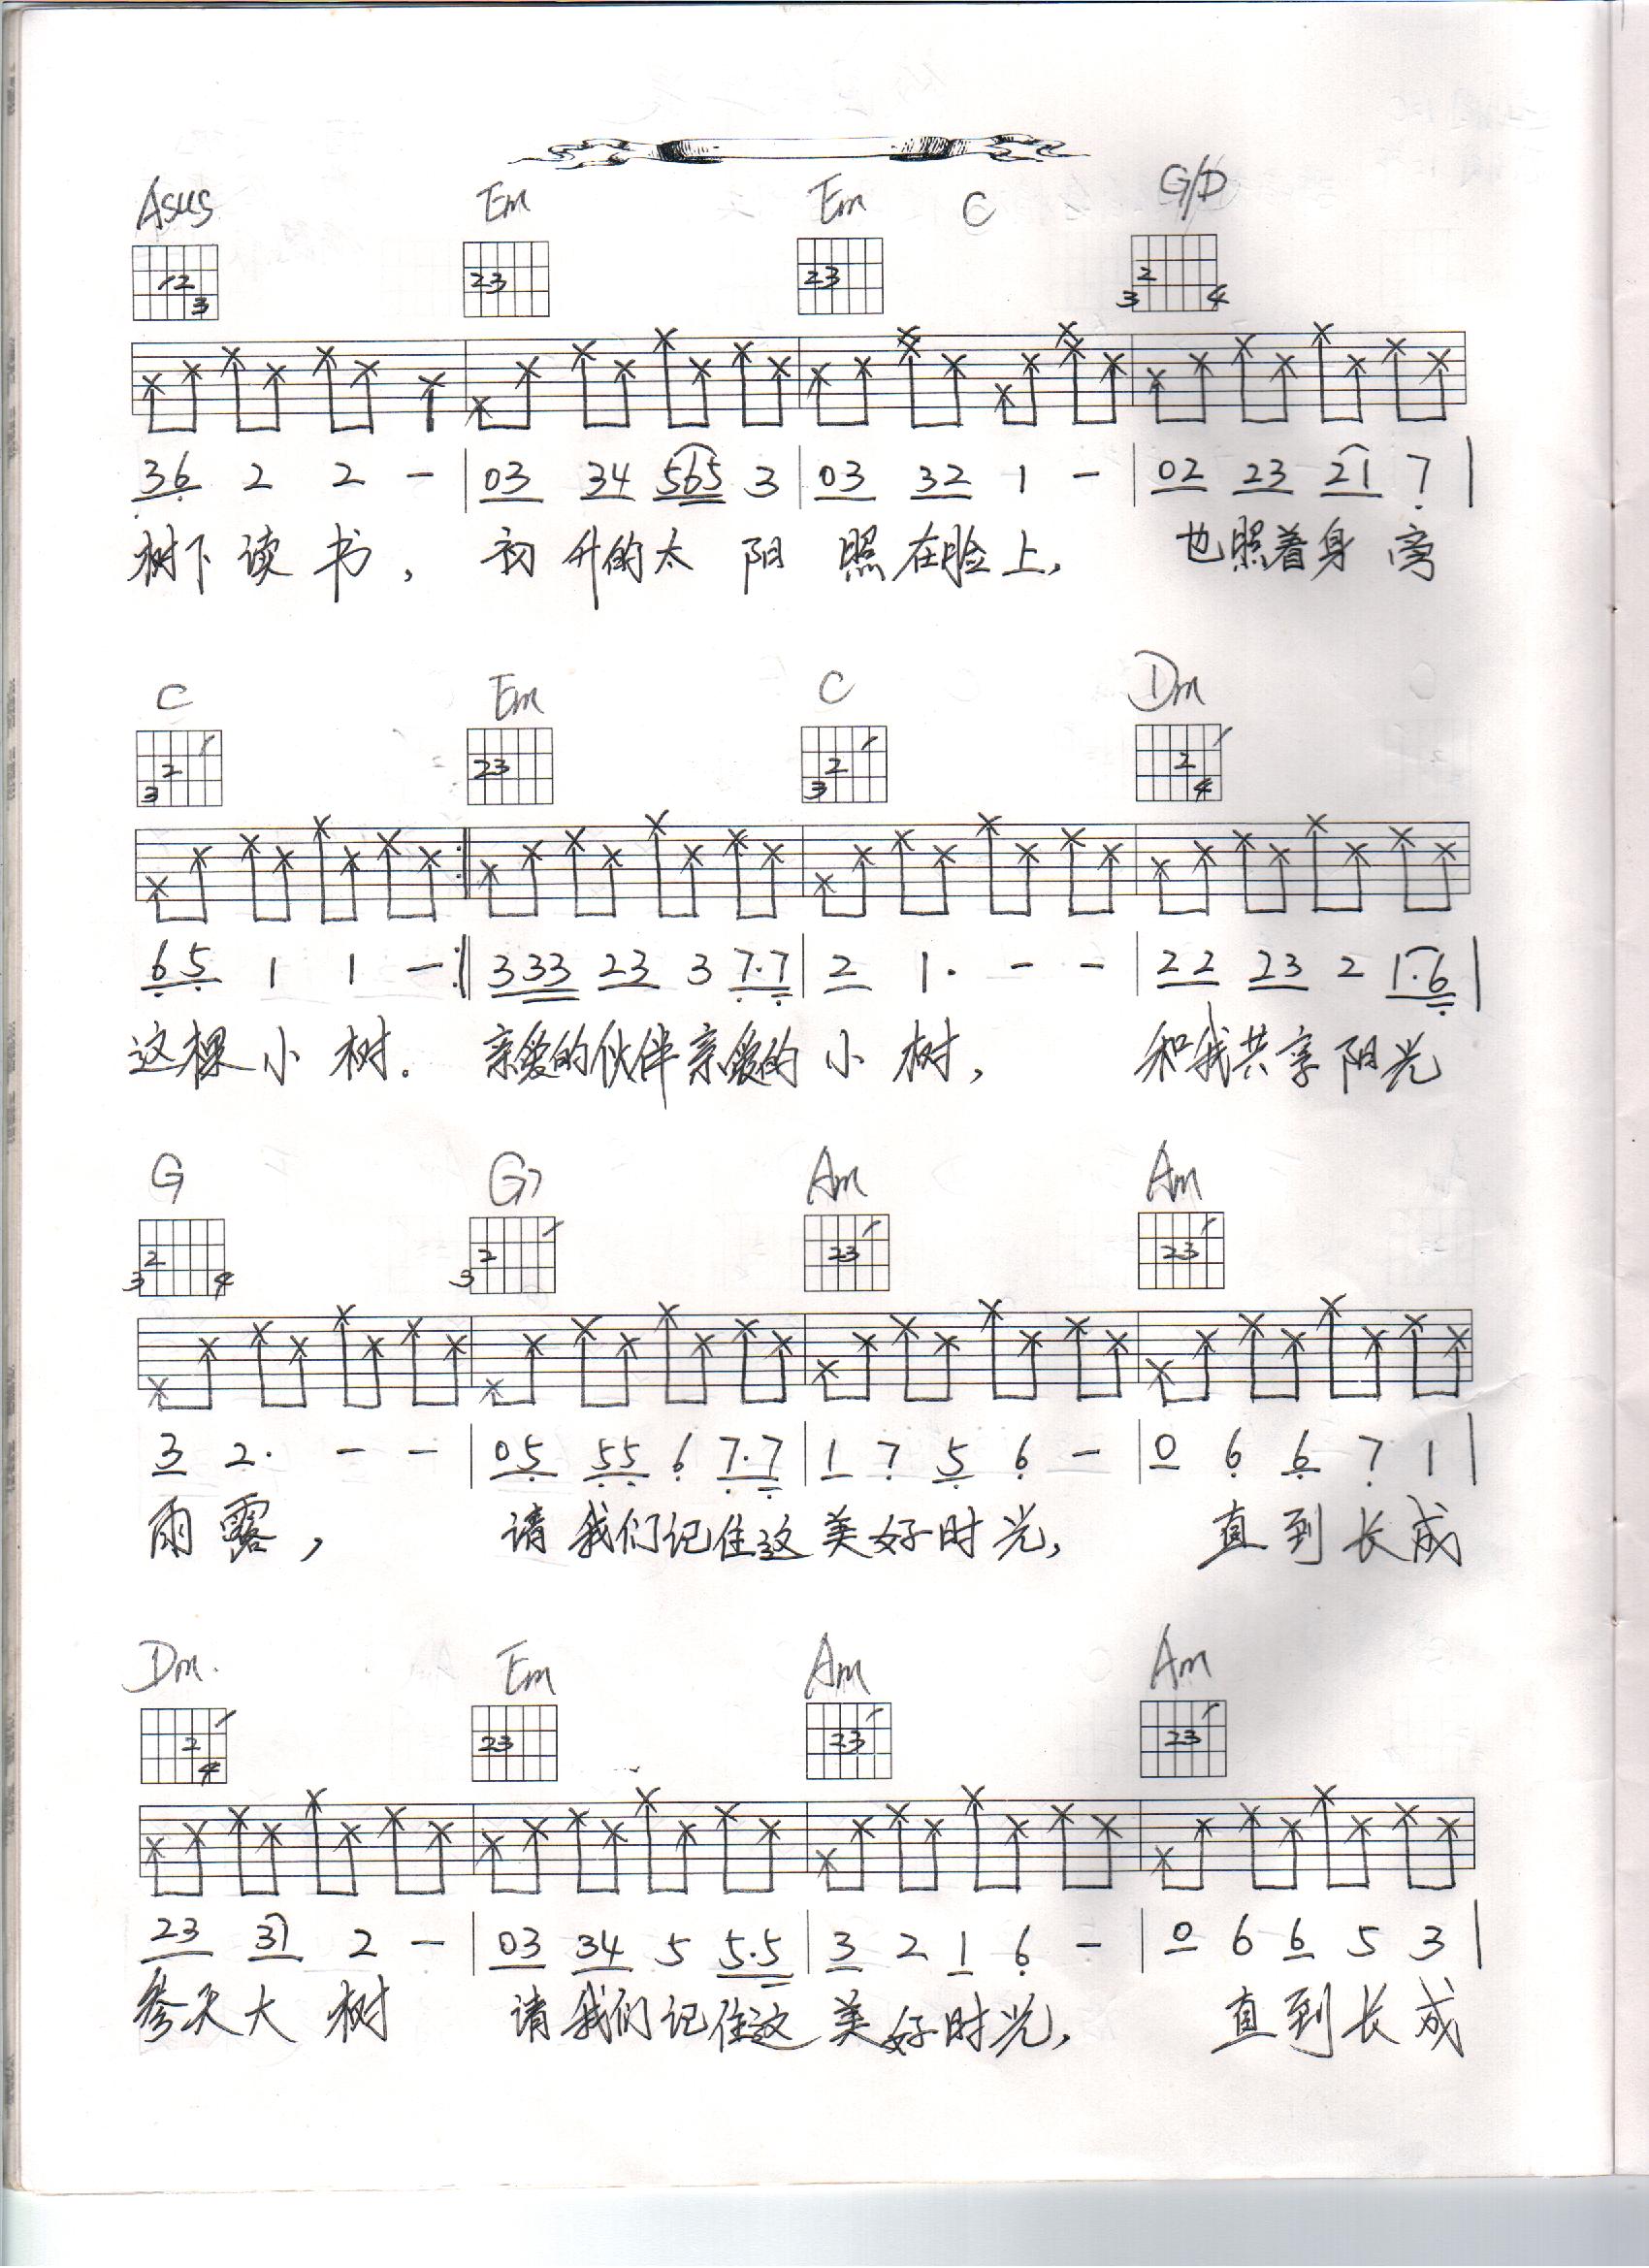 Asus Em Em C G/D
12 3 23 23 2 3 4
36 2 2 - | 03 34 565 3 | 03 32 1 - | 02 23 21 7 |
树下读书, 初升的太阳照在脸上, 也照着身旁
C Em C Dm
1 2 3 23 1 2 3 1 2 4
65 1 1 - :‖ 333 23 3 7.7 | 2 1. - - | 22 23 2 1.6 |
这棵小树. 亲爱的伙伴亲爱的小树, 和我共享阳光
G G7 Am Am
2 3 4 1 2 3 1 23 1 23
3 2. - - | 05 55 6 7.7 | 1 7 5 6 - | 0 6 6 7 1 |
雨露, 请我们记住这美好时光, 直到长成
Dm. Em Am Am
1 2 4 23 1 23 1 23
23 31 2 - | 03 34 5 5.5 | 3 2 1 6 - | 0 6 6 5 3 |
参天大树 请我们记住这美好时光, 直到长成